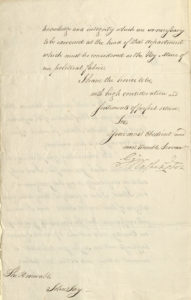 knowledge and integrity which are so necessary
to be exercised at the head of that department
which must be considered as the Key-Stone of
our political fabric.
I have the honor to be,
with high consideration and
sentiments of perfect esteem
Sir
Your most Obedient and
most Humble Servant
G. Washington
The Honorable
John Jay